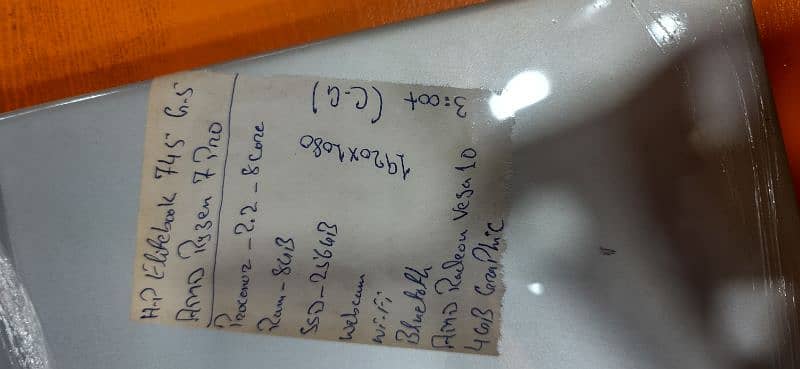 H-P Elitebook 745 G-5
AMD Ryzen 7 Pro
Processor - 2.2 - 8 Core
Ram - 8GB
SSD - 256GB
1920x1080
Webcam
Wi-Fi
Bluetoth
AMD Radeon Vega 10
4GB Graphic
(C-G)
3:00+